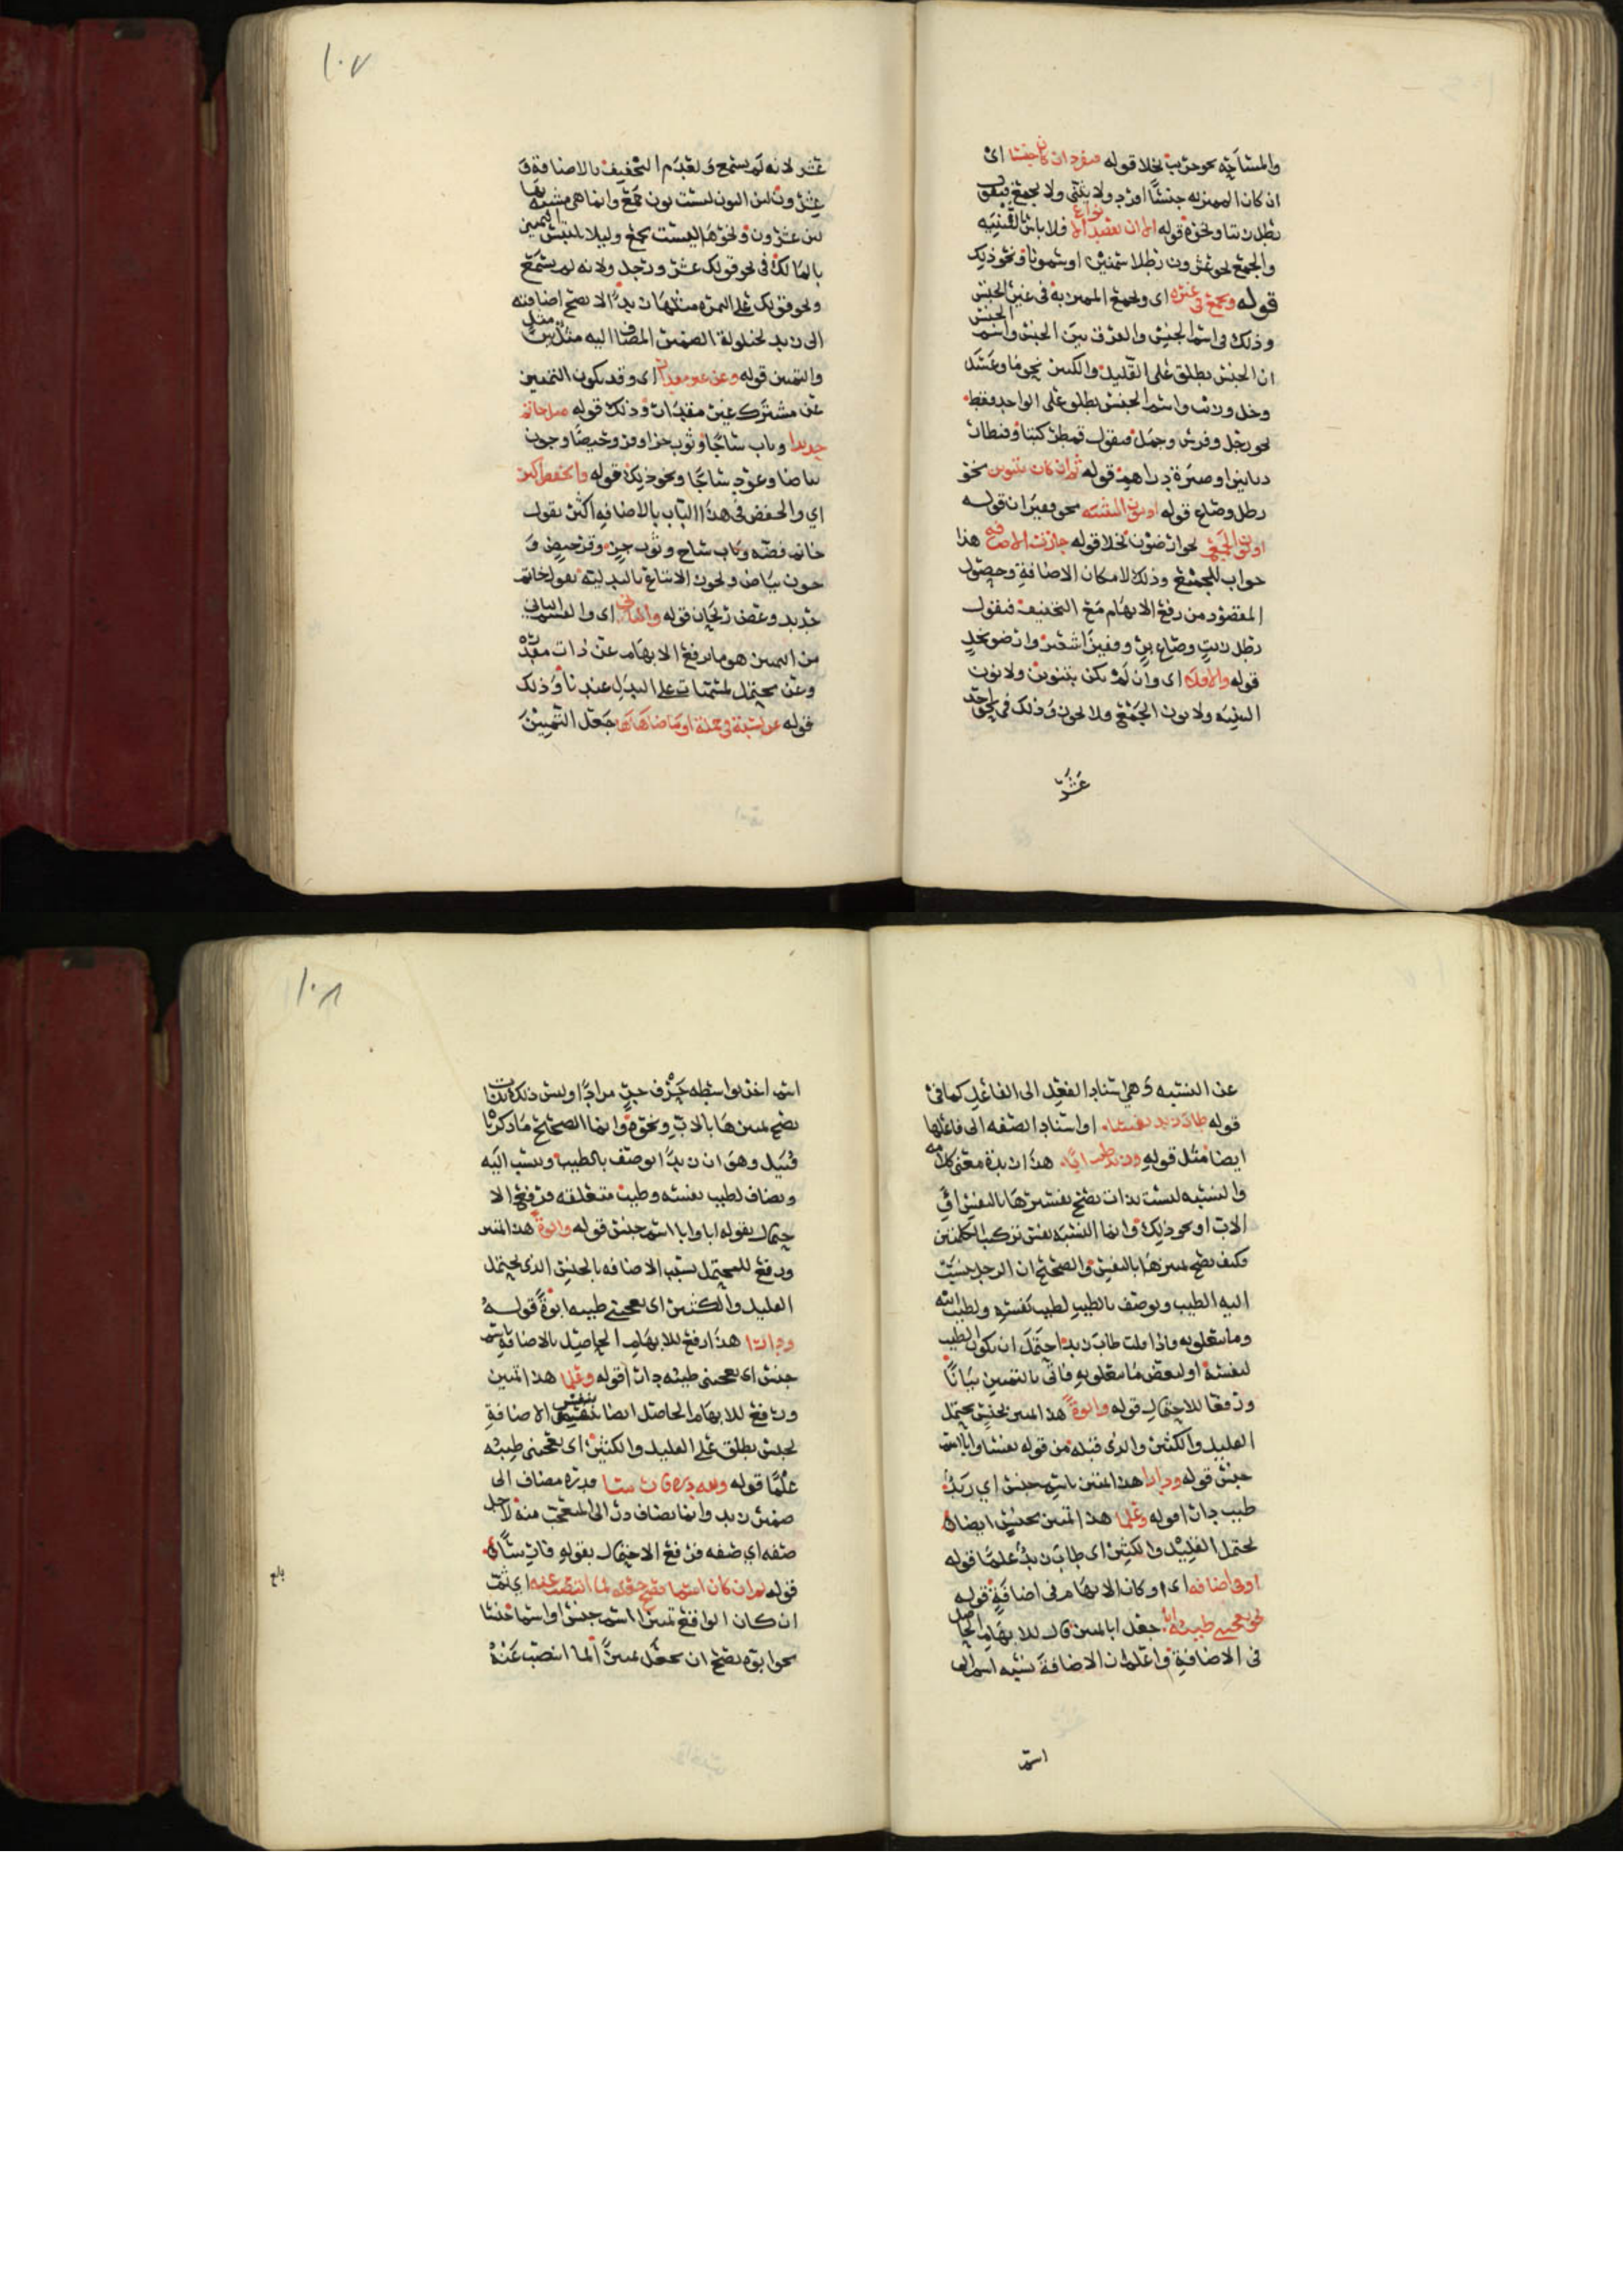 والمساحة نحو جريب نخلا قوله فيفرد ان كان جنسا اى
ان كان المميز له جنسًا افرد ولا يثنى ولا يجمع فيقول
رطل زيتا ونحوه قوله الا ان يقصد الانواع فلا باس بالتثنيه
والجمع نحو عشرون رطلا سمنين او سمونا ونحو ذلك
قوله ويجمع فى غيره اى ويجمع المميز به فى غير الجنس
وذلك فى اسم الجنس والفرق بين الجنس واسم الجنس
ان الجنس يطلق على القليل والكثير نحو ما وعسل
وخل وزيت واسم الجنس يطلق على الواحد فقط
نحو رجل وفرس وجمل فيقول قمطر كتبا وقنطار
دنانير او صبرة دراهم قوله ثم ان كان بتنوين نحو
رطل وصاع قوله او بنون التثنيه نحو قفيزان قوله
او نون الجمع نحو ارضون نخلا قوله جازت الاضافه هذا
جواب للجميع وذلك لامكان الاضافة وحصول
المقصود من رفع الابهام مع التخفيف فيقول
رطل زيتٍ وصاع برٍ وقفيزا شعير وارضو نخلٍ
قوله والا فلا اى وان لم يكن بتنوين ولا نون
التثنيه ولا نون الجمع فلا يجوز وذلك فى نحو احد
عشر
١٠٧
عشر لانه لم يسمع ولعدم التخفيف بالاضافة و
عشرون لان النون ليست نون جمع وانما هى مشبهه بها
لان عشرون ونحوها ليست بجمع وليلا يلتبس المميز
بالمالك فى نحو قولك عشر ورجل ولانه لم يسمع
ونحو قولك على التمرة مثلها زبدًا لا يصح اضافته
الى زبد لحيلولة الضمير المضاف اليه مثل بين مثل
والتمييز قوله وعن غير مقدار اى وقد يكون التمييز
عن مشترك غير مقدار وذلك قوله مثل خاتم
حديدا وباب ساجًا وثوب خزا وفرو خيصًا وجون
بياضا وعود ساجًا ونحو ذلك قوله والخفض اكثر
اي والخفض فى هذا الباب بالاضافه اكثر يقول
خاتم فضّه وباب ساج وثوب خز وفرو خيصٍ و
جون بياض ويجوز الاتباع بالبدلية يقول خاتم
حديد وغصن ريحان قوله والثانى اى والقسم الثانى
من التمييز هو ما يرفع الابهام عن ذات مقدرة
وعن محتمل لمسميات على البدل عندنا وذلك
قوله عن نسبة فى جملة او ما ضاهاها جعل التمييز
عن النسبه وهى اسناد الفعل الى الفاعل كما فى
قوله طاب زيد نفسا او اسناد الصفه الى فاعلها
ايضا مثل قوله وزيد طيب ابًا هذا زبدة معنى كلامه
والنسبه ليست بذات يصح تفسيرها بالنفس او
الاب او نحو ذلك وانما النسبه نفس تركيب الكلمتين
فكيف يصح تمييزها بالنفس والصحيح ان الرجل ينسب
اليه الطيب ويوصف بالطيب لطيب نفسه ولطيب ابيه
وما يتعلق به فاذا قلت طاب زيد احتمل ان يكون الطيب
لنفسه او لبعض ما يتعلق به فاتى بالتمييز بيانًا
ورفعًا للاحتمال قوله وابوةً هذا تمييز بجنس يحتمل
القليل والكثير والذى قبله من قوله نفسا وابا اسم
جنس قوله ودارا هذا تمييز باسم جنس اي زيد
طيب دارا قوله وعلما هذا تمييز بجنس ايضا
يحتمل القليل والكثير اى طاب زيد علمًا قوله
او فى اضافه اى او كان الابهام فى اضافة قوله
نحو يعجبنى طيبه ابا جعل ابا تمييز قال للابهام الحاصل
فى الاضافة واعلم ان الاضافة نسبه اسم الى
اسم
١٠٨
اسم اخر بواسطه حرف جر مرادًا وليس ذلك بذات
يصح تمييزها بالاب ونحوه وانما الصحيح ما ذكرنا
قبيل وهو ان زيدًا يوصف بالطيب وينسب اليه
ويضاف لطيب نفسه وطيب متعلقه فرفع الا
حتمال بقوله ابا وابا اسم جنس قوله وابوةً هذا تمييز
ورفع للمحتمل بسبب الاضافه بالجنس الذى يحتمل
القليل والكثير اى يعجبنى طيبه ابوةً قوله
ودارا هذا رفع للابهام الحاصل بالاضافة باسم
جنس اى يعجبنى طيبه دارا قوله وعلما هذا تمييز
ورفع للابهام الحاصل ايضا بنفس الاضافة
بجنس يطلق على القليل والكثير اى يعجبنى طيبه
علمًا قوله ولله دره فارسا فدره مضاف الى
ضمير زيد وانما يضاف در الى المتعجب منه لاجل
صفه اي صفه فرفع الاحتمال بقوله فارسًا
قوله ثم ان كان اسما يصح جعله لما انتصب عنه اي ثم
ان كان الواقع تمييزا اسم جنس او اسما جنسا
نحو ابوه يصح ان يجعل تمييزًا لما انتصب عنه
بلغ